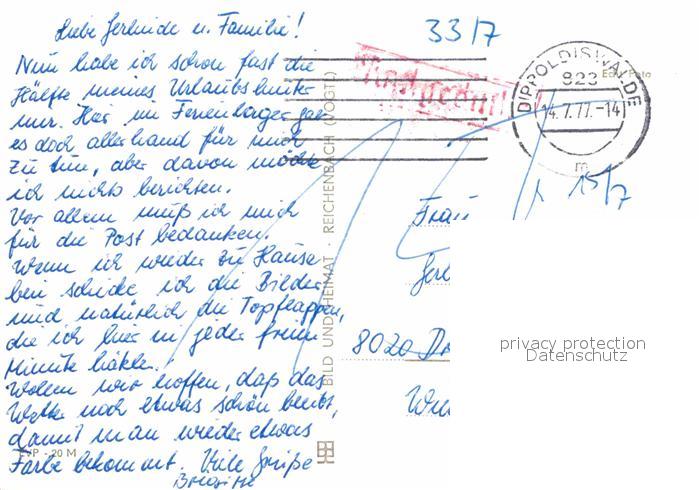 Liebe Gerlinde u. Familie!
Nun habe ich schon fast die
Hälfte meines Urlaubs hinter
mir. Hier im Ferienlager gab
es doch allerhand für mich
zu tun, aber davon möchte
ich nichts berichten.
Vor allem muß ich mich
für die Post bedanken.
Wenn ich wieder zu Hause
bin schicke ich die Bilder
und natürlich die Topflappen,
die ich hier in jeder freien
Minute häkle.
Wollen wir hoffen, daß das
Wetter noch etwas schön bleibt,
damit man wieder etwas
Farbe bekommt. Viele Grüße
Brigitte
EVP - 20 M
BILD UND HEIMAT · REICHENBACH (VOGTL)
33/7
DIPPOLDISWALDE
823
14.7.77.-14
m
Foto
15/7
Frau
Gerl
8020 Dr
privacy protection
Datenschutz